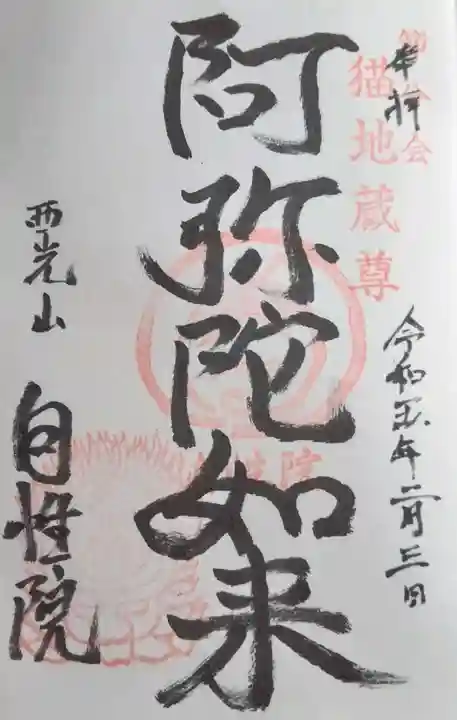 奉拝
節分会
猫地蔵尊
令和五年二月三日
阿弥陀如来
西光山
自性院